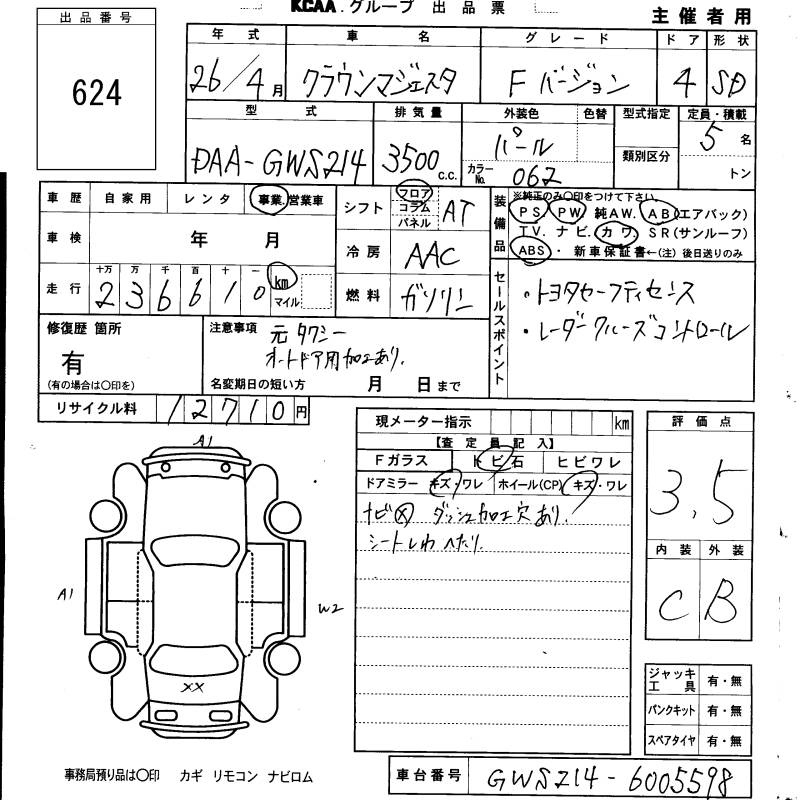 KCAA.グループ 出品票
主催者用
出品番号
624
年式 車名 グレード ドア 形状
26/4月 クラウンマジェスタ Fバージョン 4 SD
型式 排気量 外装色 色替 型式指定 定員・積載
DAA-GWS214 3500c.c. パール 類別区分 5名
カラーNo. 062 トン
車歴 自家用 レンタ 事業・営業車
シフト フロア コラム パネル AT
装備品
※純正のみ〇印をつけて下さい。
PS PW 純AW. AB(エアバック)
TV. ナビ. カワ. SR(サンルーフ)
ABS・新車保証書←(注)後日送りのみ
車検 年 月
冷房 AAC
走行 十万 万 千 百 十 一
236610 km マイル
燃料 ガソリン
セールスポイント
・トヨタセーフティセンス
・レーダークルーズコントロール
修復歴 箇所
有
(有の場合は〇印を)
注意事項 元タクシー
オートドア用加工あり.
名変期日の短い方 月 日まで
リサイクル料 12710円
現メーター指示 km
【査定員記入】
Fガラス トビ石 ヒビワレ
ドアミラー キズ・ワレ ホイール(CP) キズ・ワレ
ナビ㋱ ダッシュ加工穴あり.
シートしわ へたり.
評価点
3.5
内装 外装
C B
A1
A1
W2
XX
ジャッキ工具 有・無
パンクキット 有・無
スペアタイヤ 有・無
事務局預り品は〇印 カギ リモコン ナビロム
車台番号 GWS214-6005598